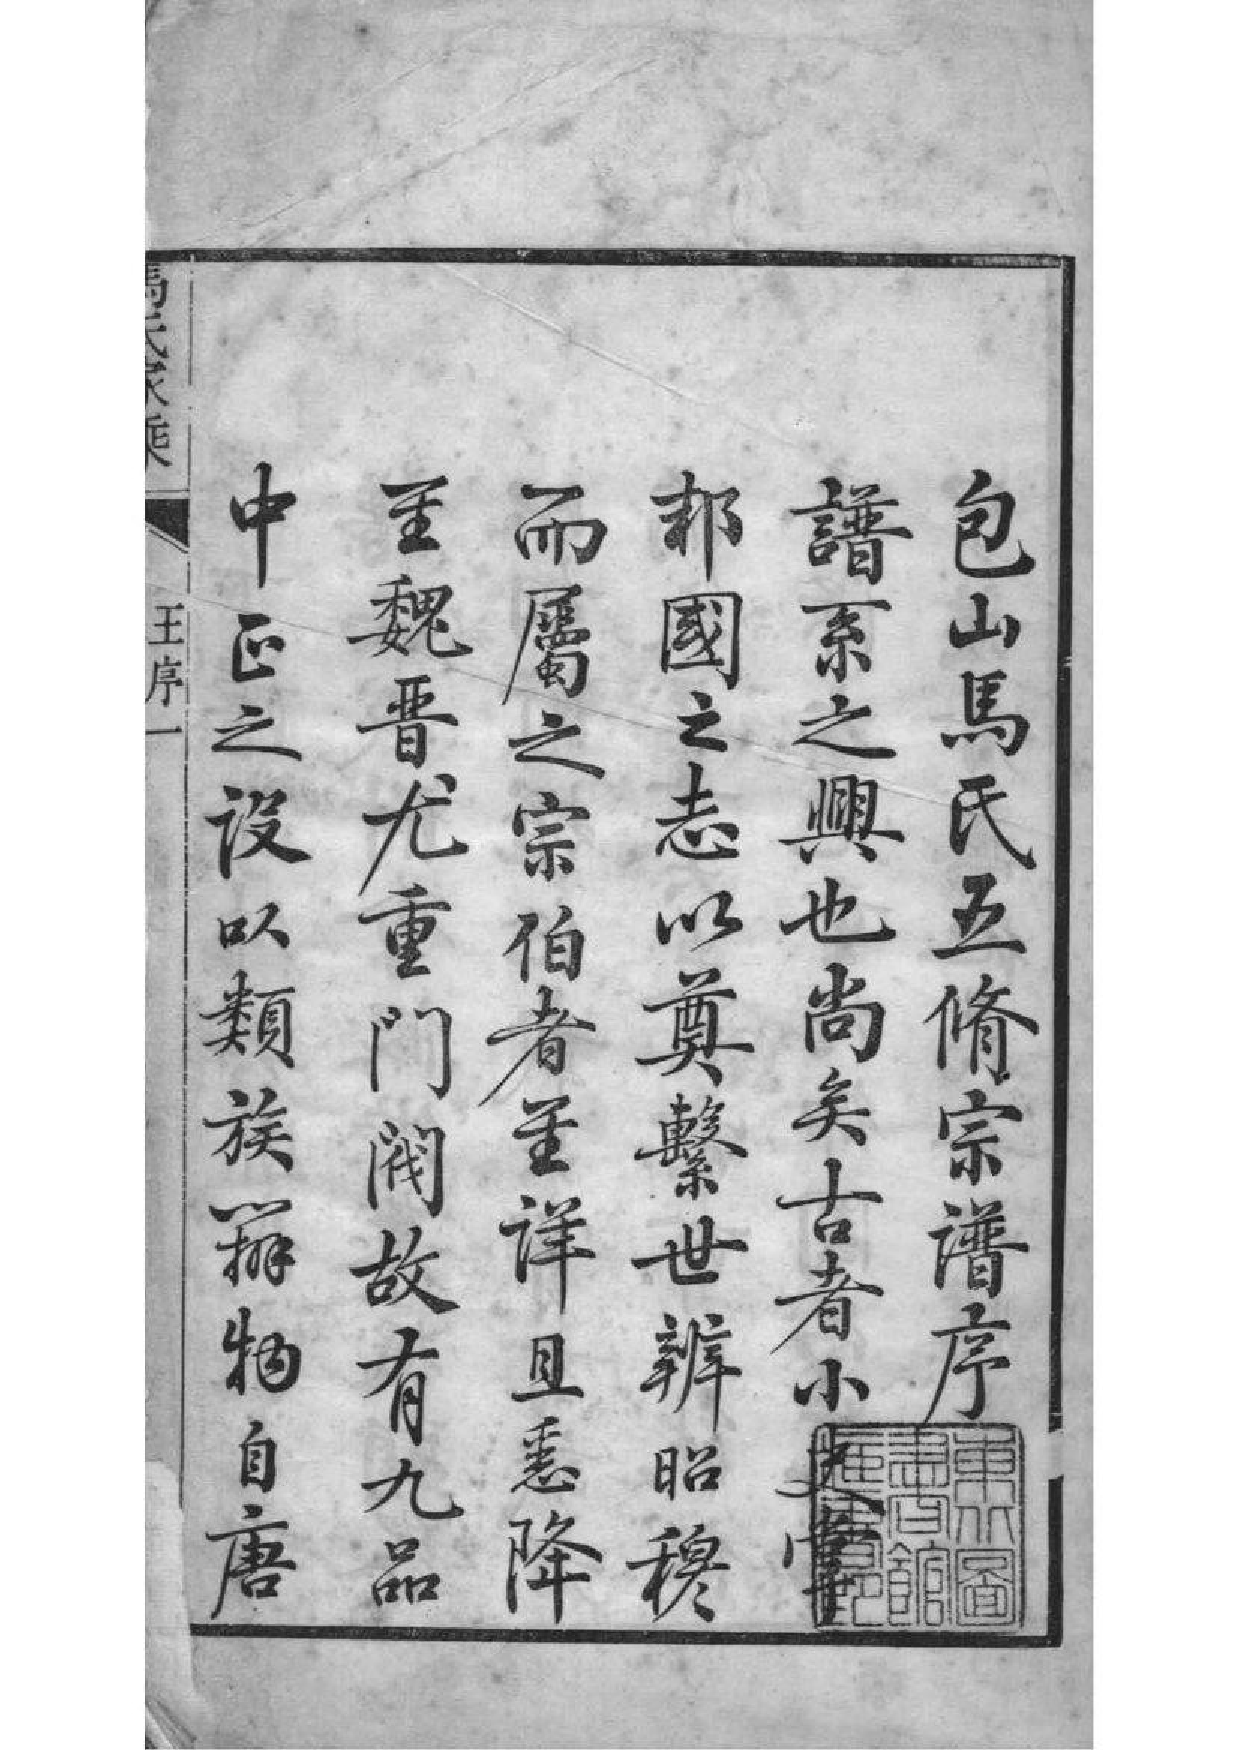 包山馬氏五脩宗譜序
譜系之興也尚矣古者小史掌
邦國之志以奠繫世辨昭穆
而屬之宗伯者至詳且悉降
至魏晋尤重門閥故有九品
中正之設以類族辦物自唐
馬氏家乘
王序
一